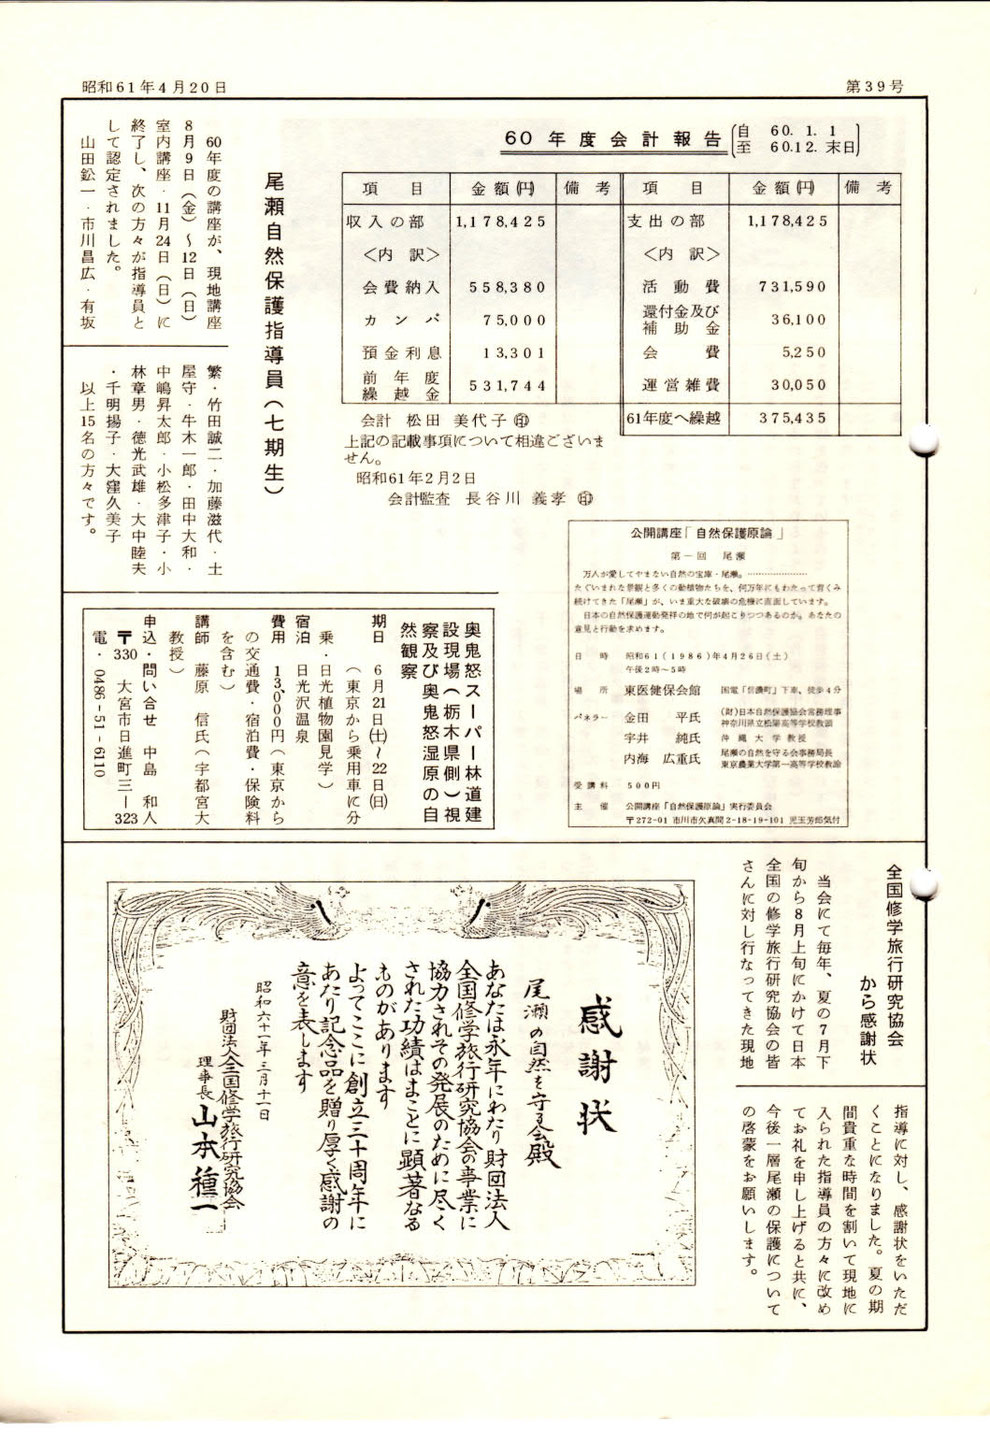 昭和61年4月20日
第39号
60年度会計報告
自 60.1.1
至 60.12.末日
項目 金額(円) 備考 項目 金額(円) 備考
収入の部 1,178,425 支出の部 1,178,425
<内訳> <内訳>
会費納入 558,380 活動費 731,590
カンパ 75,000 還付金及び補助金 36,100
預金利息 13,301 会費 5,250
前年度繰越金 531,744 運営雑費 30,050
61年度へ繰越 375,435
会計 松田 美代子 ㊞
上記の記載事項について相違ございま
せん。
昭和61年2月2日
会計監査 長谷川 義孝 ㊞
尾瀬自然保護指導員(七期生)
60年度の講座が、現地講座
8月9日(金)~12日(日)
室内講座・11月24日(日)に
終了し、次の方々が指導員と
して認定されました。
山田鈆一・市川昌広・有坂
繁・竹田誠二・加藤滋代・土
屋守・牛木一郎・田中大和・
中嶋昇太郎・小松多津子・小
林章男・徳光武雄・大中睦夫
・千明揚子・大窪久美子
以上15名の方々です。
公開講座「自然保護原論」
第一回 尾瀬
万人が愛してやまない自然の宝庫・尾瀬。…………………
たぐいまれな景観と多くの動植物たちを、何万年にもわたって育くみ
続けてきた「尾瀬」が、いま重大な破壊の危機に直面しています。
日本の自然保護運動発祥の地で何が起こりつつあるのか。あなたの
意見と行動を求めます。
日時 昭和61(1986)年4月26日(土)
午後2時~5時
場所 東医健保会館 国電「信濃町」下車、徒歩4分
パネラー 金田 平氏 (財)日本自然保護協会常務理事
神奈川県立松陽高等学校教諭
宇井 純氏 沖縄大学教授
内海 広重氏 尾瀬の自然を守る会事務局長
東京農業大学第一高等学校教諭
受講料 500円
主催 公開講座「自然保護原論」実行委員会
〒272-01 市川市欠真間2-18-19-101 児玉芳郎気付
奥鬼怒スーパー林道建
設現場(栃木県側)視
察及び奥鬼怒湿原の自
然観察
期日 6月21日(土)~22日(日)
(東京から乗用車に分
乗・日光植物園見学)
宿泊 日光沢温泉
費用 13,000円(東京から
の交通費・宿泊費・保険料
を含む)
講師 藤原 信氏(宇都宮大
教授)
申込・問い合せ 中島 和人
〒330 大宮市日進町三ー323
電・0486-51-6110
全国修学旅行研究協会
から感謝状
当会にて毎年、夏の7月下
旬から8月上旬にかけて日本
全国の修学旅行研究協会の皆
さんに対し行なってきた現地
指導に対し、感謝状をいただ
くことになりました。夏の期
間貴重な時間を割いて現地に
入られた指導員の方々に改め
てお礼を申し上げると共に、
今後一層尾瀬の保護について
の啓蒙をお願いします。
感謝状
尾瀬の自然を守る会殿
あなたは永年にわたり財団法人
全国修学旅行研究協会の事業に
協力されその発展のために尽く
された功績はまことに顕著なる
ものがあります
よってここに創立三十周年に
あたり記念品を贈り厚く感謝の
意を表します
昭和六十一年三月十一日
財団法人全国修学旅行研究協会
理事長 山本種一